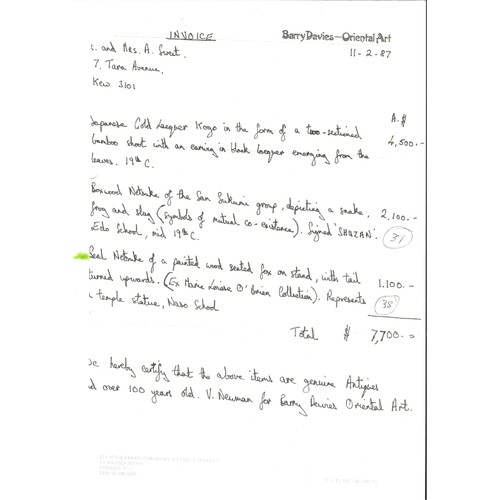 INVOICE
Barry Davies—Oriental Art
11-2-87
. and Mrs. A. Sweet.
7, Tara Avenue,
Kew 3101
A.$
Japanese Gold Lacquer Kogo in the form of a two-sectioned 4,500.-
bamboo shoot with an earwig in black lacquer emerging from the
leaves. 19th C.
Boxwood Netsuke of the San Sukumi group, depicting a snake, 2,100.-
frog and slug (symbols of mutual co-existence). Signed 'SHUZAN'. 31
Edo School, mid 19th C.
Seal Netsuke of a painted wood seated fox on stand, with tail 1,100.-
turned upwards. (Ex Marie Louise O'Brien Collection). Represents 38
a temple statue, Naso School
Total $ 7,700.=
hereby certify that the above items are genuine Antiques
over 100 years old. V. Newman for Barry Davies Oriental Art.